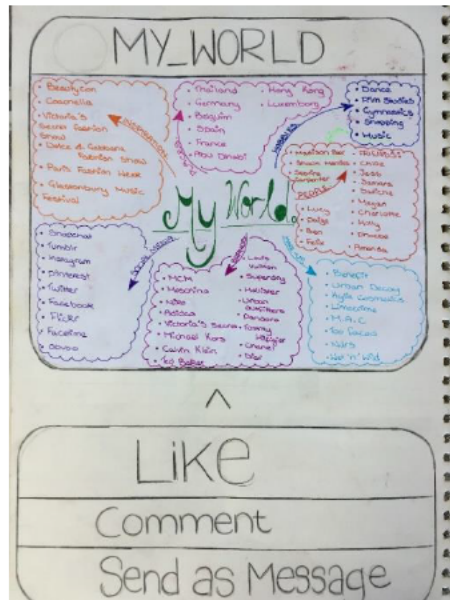 MY_WORLD
• Beautycon
• Coachella
• Victoria's
Secret fashion
Show
• Dolce & Gabbana
Fashion Show
• Paris Fashion Week
• Glastonbury Music
Festival
• Thailand
• Germany
• Belgium
• Spain
• France
• Abu Dhabi
• Hong Kong
• Luxembourg
• Dance
• Film Studies
• Gymnastics
• Shopping
• Music
• Madison Beer
• Shawn Mendes
• Sabrina
Carpenter
PEOPLE
• Lucy
• Ben
• Chloe
• Jess
• Tamara
• Megan
• Charlotte
• Holly
• Phoebe
• Amanda
My World
• Snapchat
• Tumblr
• Instagram
• pinterest
• Twitter
• Facebook
• Flickr
• Facetime
• oovoo
• MCM
• Moschino
• Nike
• Adidas
• Victoria's Secret
• Michael Kors
• Calvin Klein
• Ted Baker
• Louis
Vuitton
• Superdry
• Hollister
• Urban
Outfitters
• Pandora
• Tommy
Hilfiger
• Chanel
• Dior
• Benefit
• Urban Decay
• Kylie Cosmetics
• Limecrime
• M.A.C
• Too Faced
• Nars
• Wet 'n' Wild
Like
Comment
Send as Message